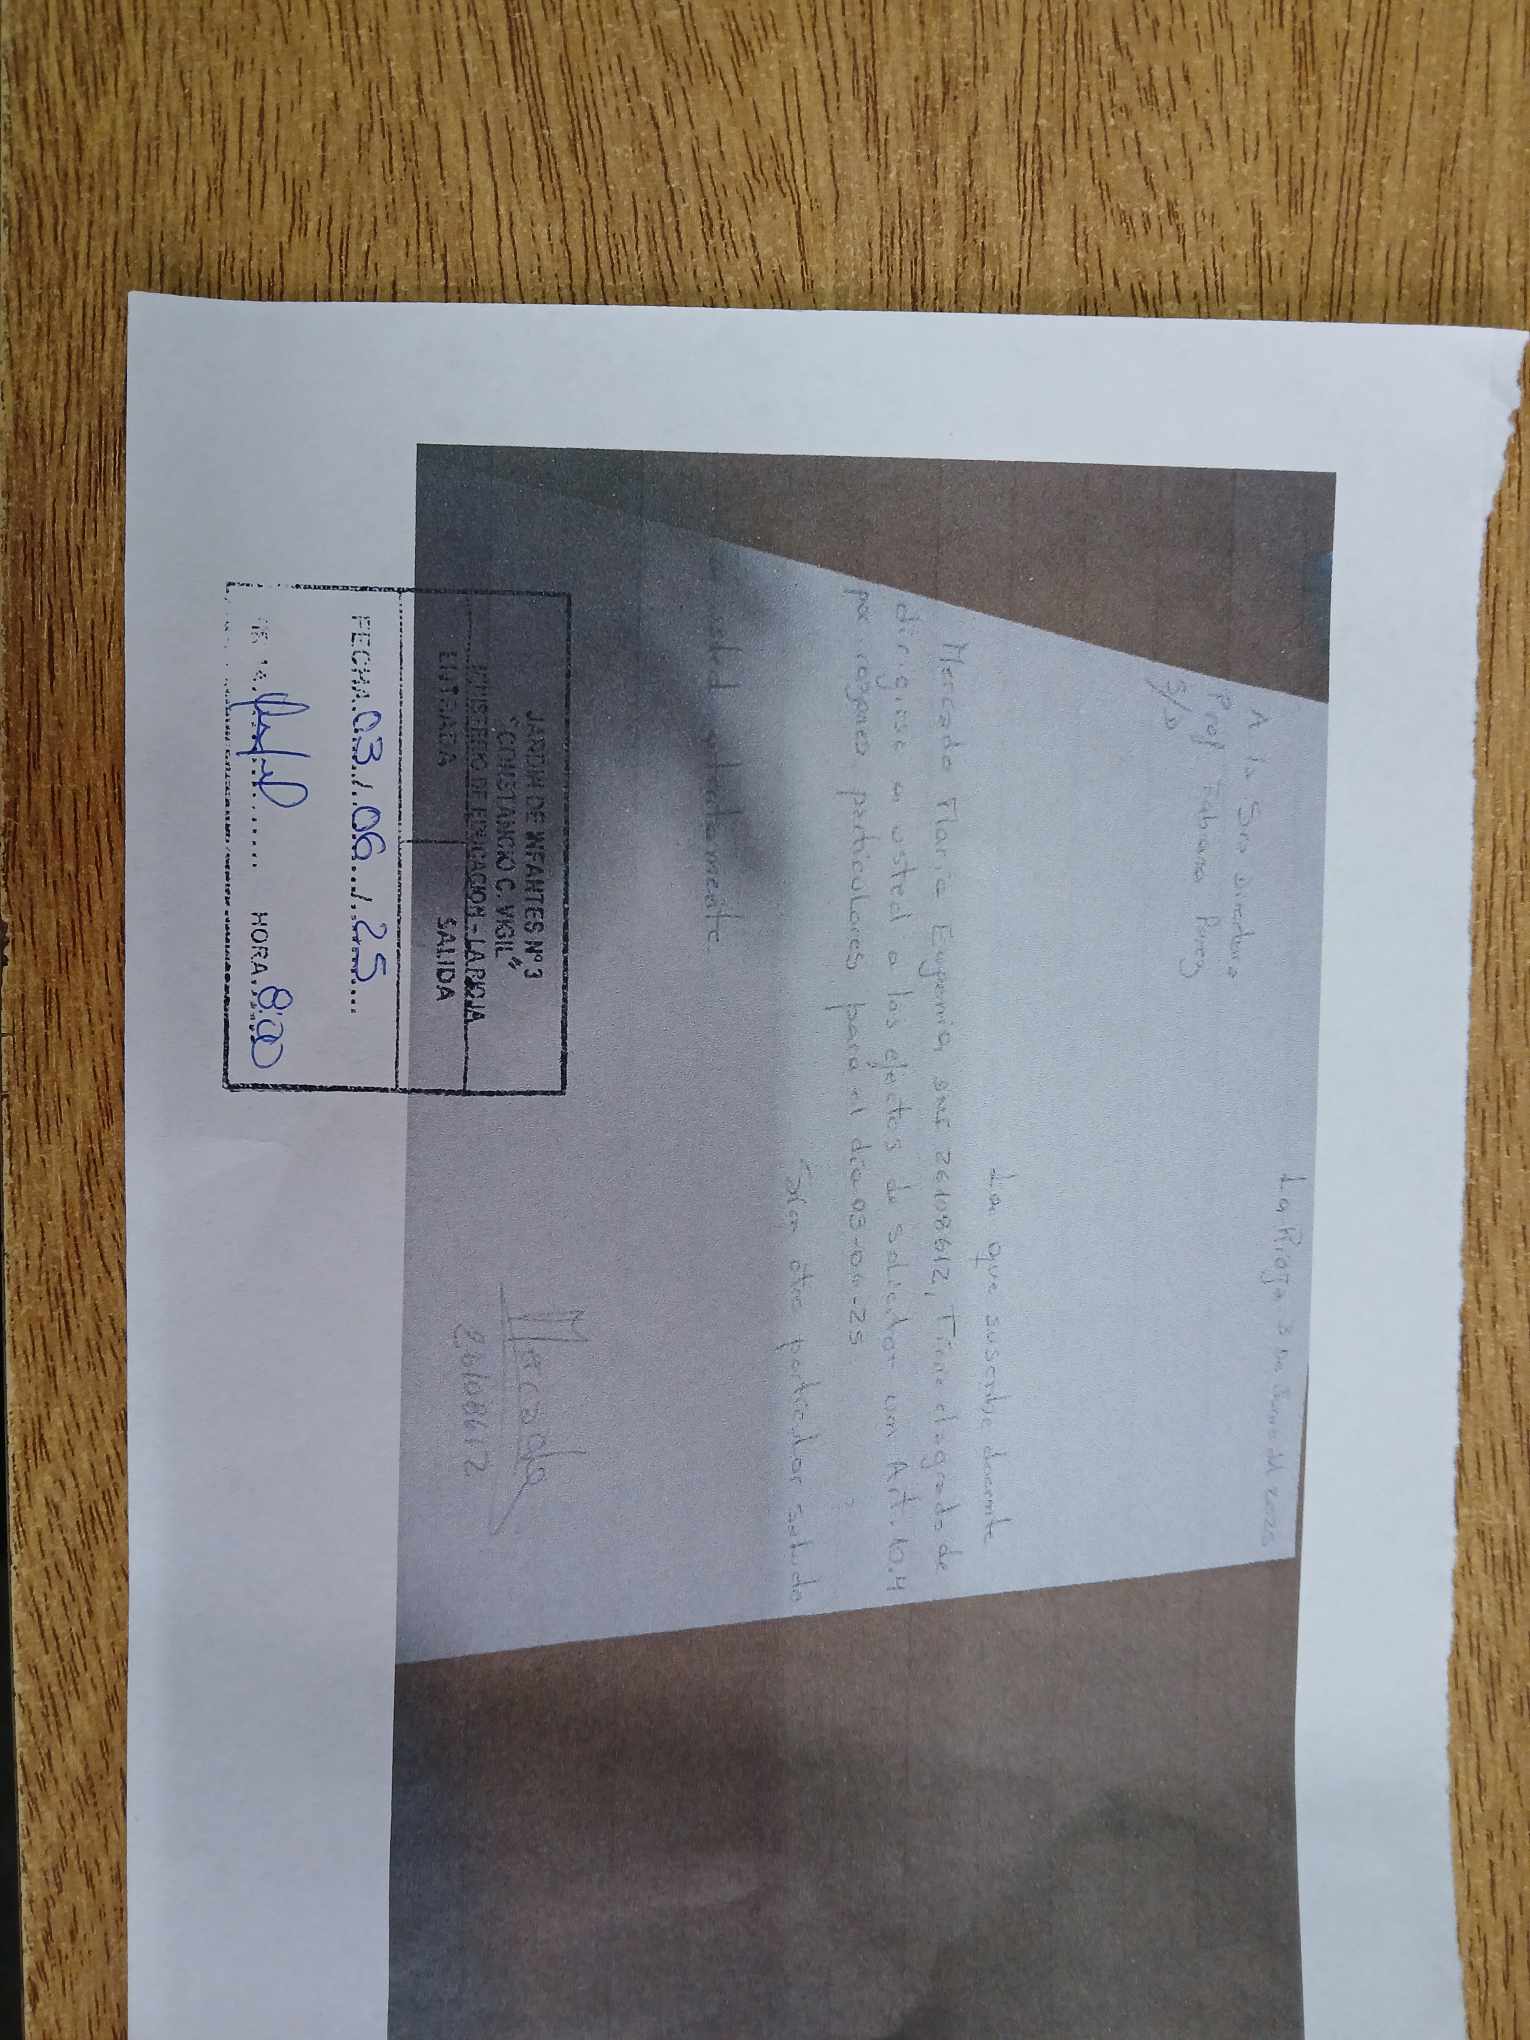 La Rioja 3 de Junio del 2025
A la Sra Directora
Prof Fabiana Perez
S/D
La que suscribe docente
Mercado María Eugenia DNI 26108612, Tiene el agrado de
dirigirse a usted a los efectos de solicitar un Art. 10.4
por razones particulares para el día 03-06-25
Sin otro particular saluda
usted atentamente.
Mercado
26108612
JARDIN DE INFANTES Nº3
"CONSTANCIO C. VIGIL"
MINISTERIO DE EDUCACION - LA RIOJA
ENTRADA SALIDA
FECHA 03/06/25
HORA 8:00